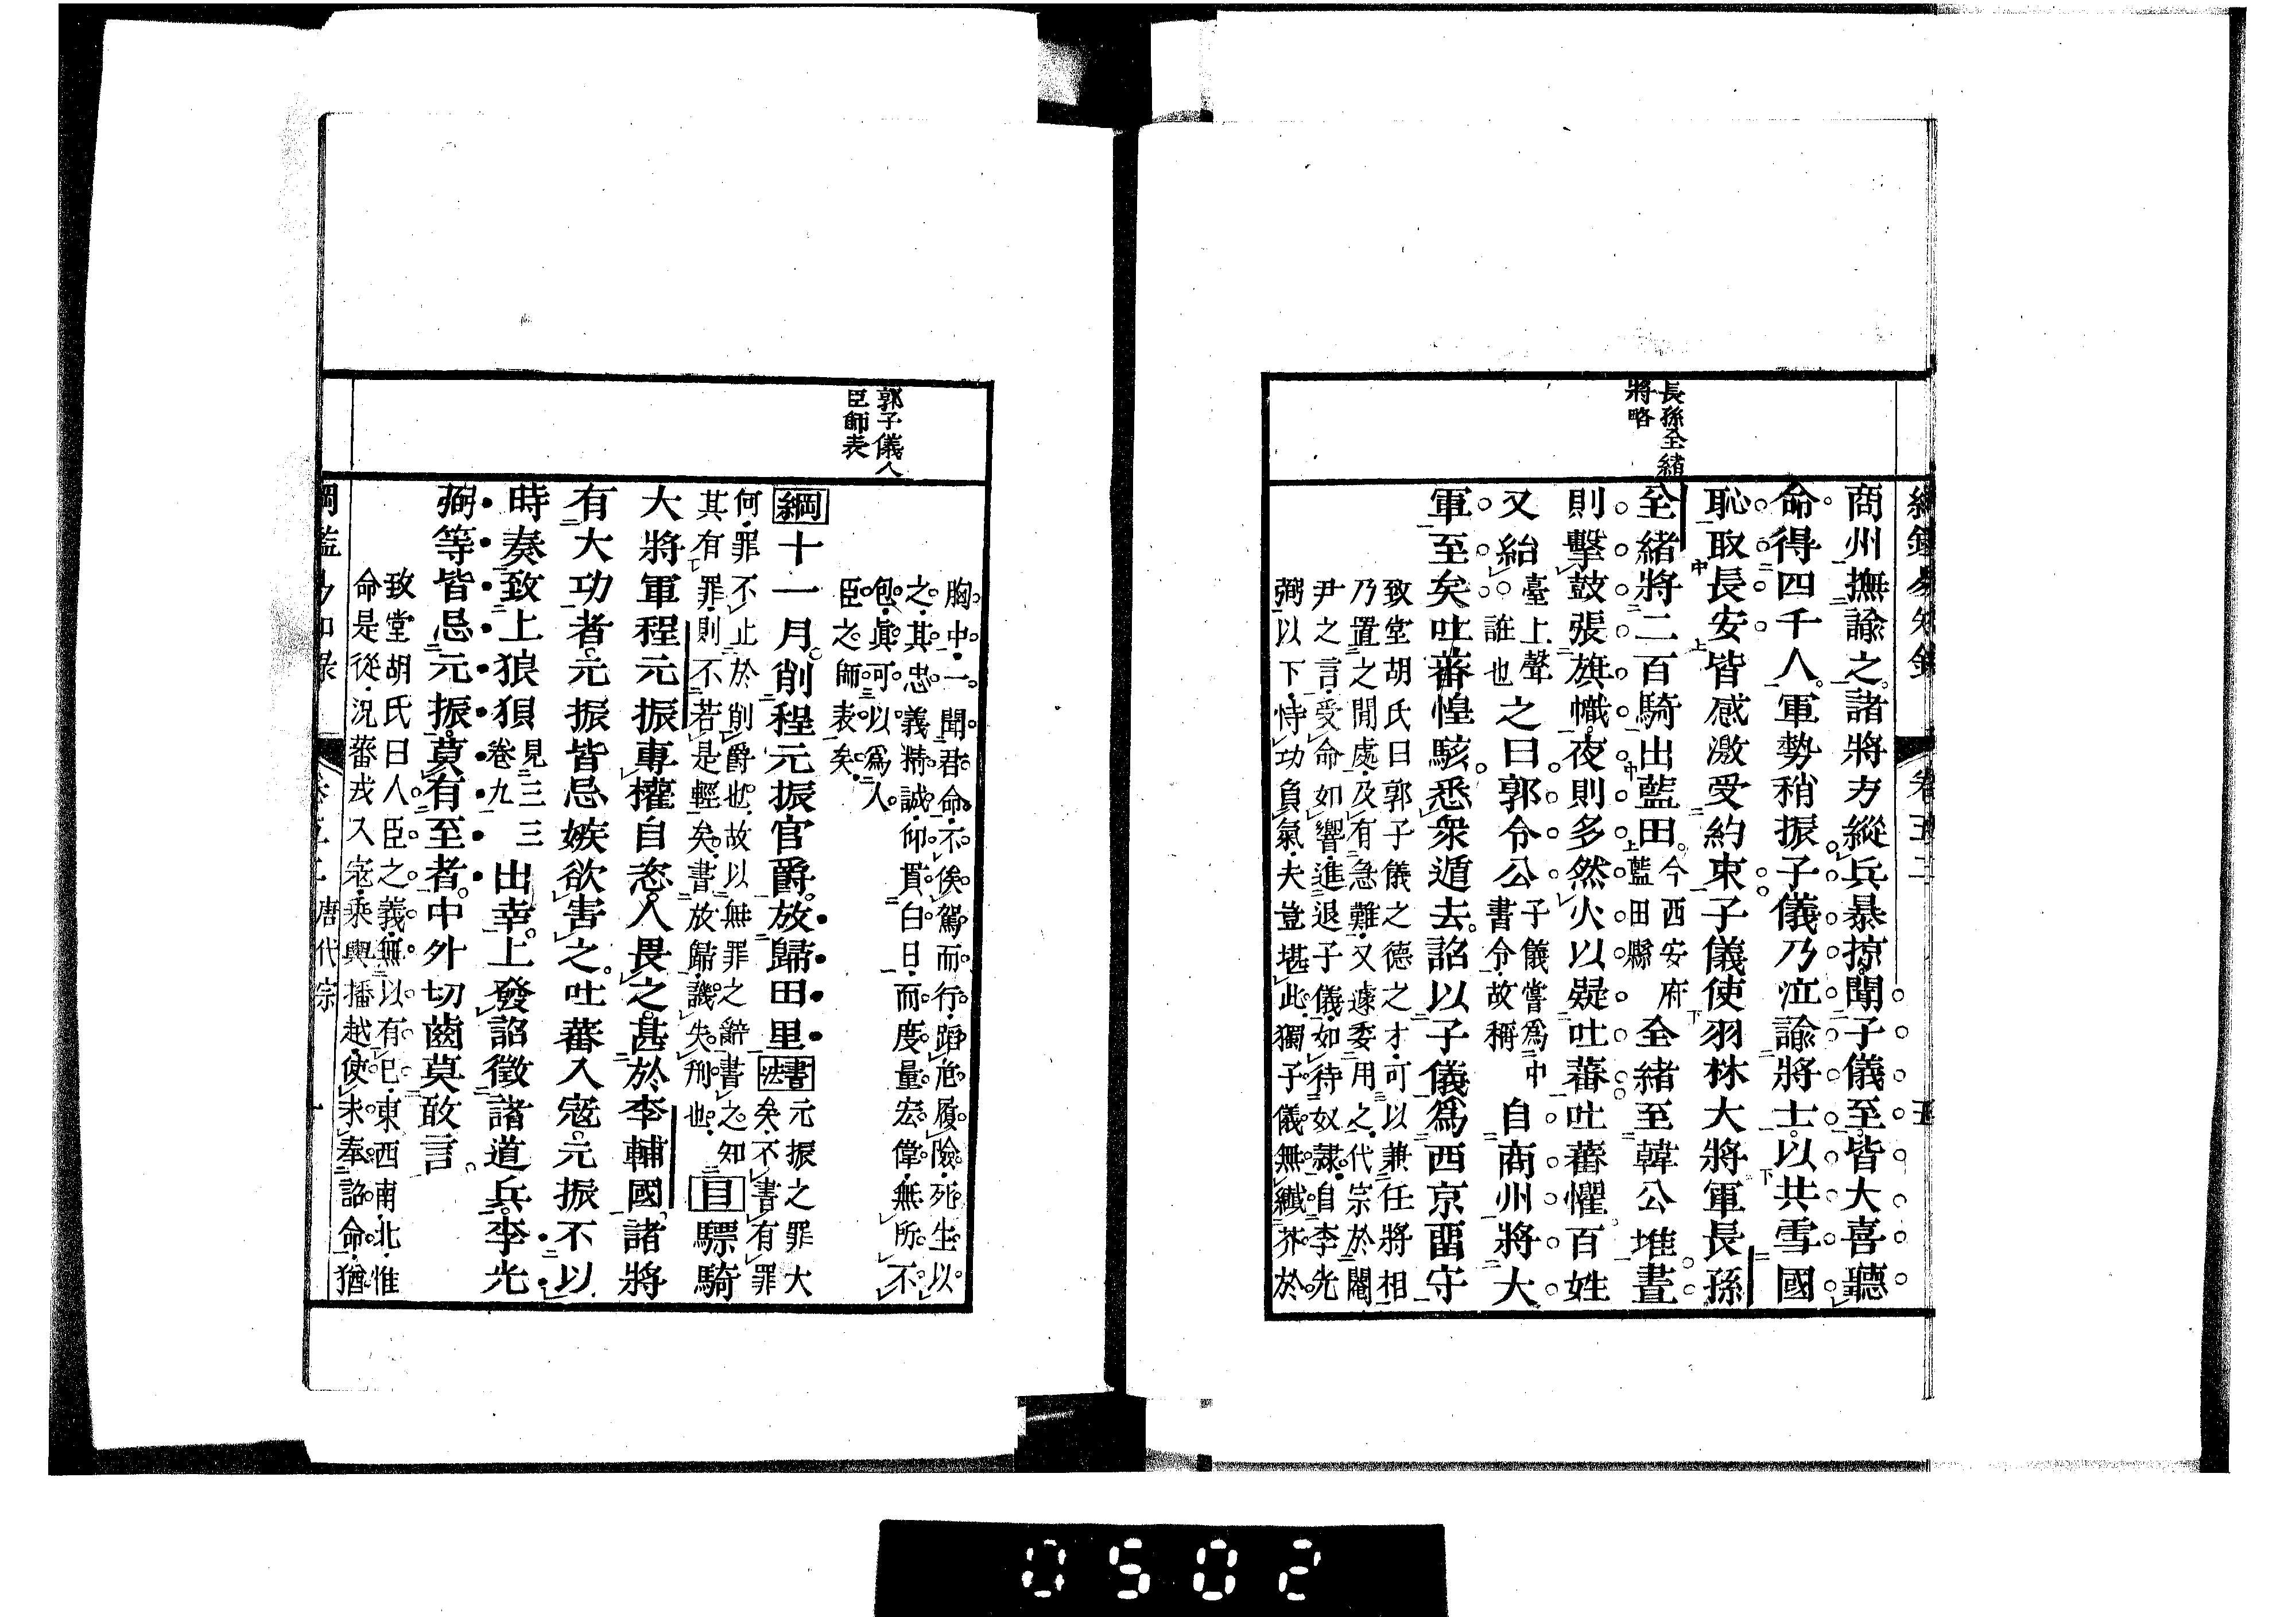 長孫全緒
將略
商州撫諭之諸將方縱兵暴掠聞子儀至皆大喜聽
命得四千人軍勢稍振子儀乃泣諭將士以共雪國
恥取長安皆感激受約束子儀使羽林大將軍長孫
全緒將二百騎出藍田今西安府藍田縣全緒至韓公堆晝
則擊鼓張旗幟夜則多然火以疑吐蕃吐蕃懼百姓
又紿臺上聲誑也之曰郭令公子儀嘗爲中書令故稱自商州將大
軍至矣吐蕃惶駭悉衆遁去詔以子儀爲西京畱守
致堂胡氏曰郭子儀之德之才可以兼任將相
乃置之閒處及有急難又遽委用之代宗於闇
尹之言受命如響進退子儀如待奴隸自李光
弼以下恃功負氣夫豈堪此獨子儀無纖芥於
郭子儀人
臣師表
胸中一聞君命不俟駕而行蹈危履險死生以
之其忠義精誠仰貫白日而度量宏偉無所不
包眞可以爲人
臣之師表矣
綱十一月削程元振官爵放歸田里書法元振之罪大矣不書有罪
何罪不止於削爵也故以無罪之辭書之知
其有罪則不若是輕矣書放歸譏失刑也目驃騎
大將軍程元振專權自恣人畏之甚於李輔國諸將
有大功者元振皆忌嫉欲害之吐蕃入寇元振不以
時奏致上狼狽見三三卷九出幸上發詔徵諸道兵李光
弼等皆忌元振莫有至者中外切齒莫敢言
致堂胡氏曰人臣之義無以有己東西南北惟
命是從況蕃戎入寇乘輿播越使未奉詔命猶
唐代宗
0502